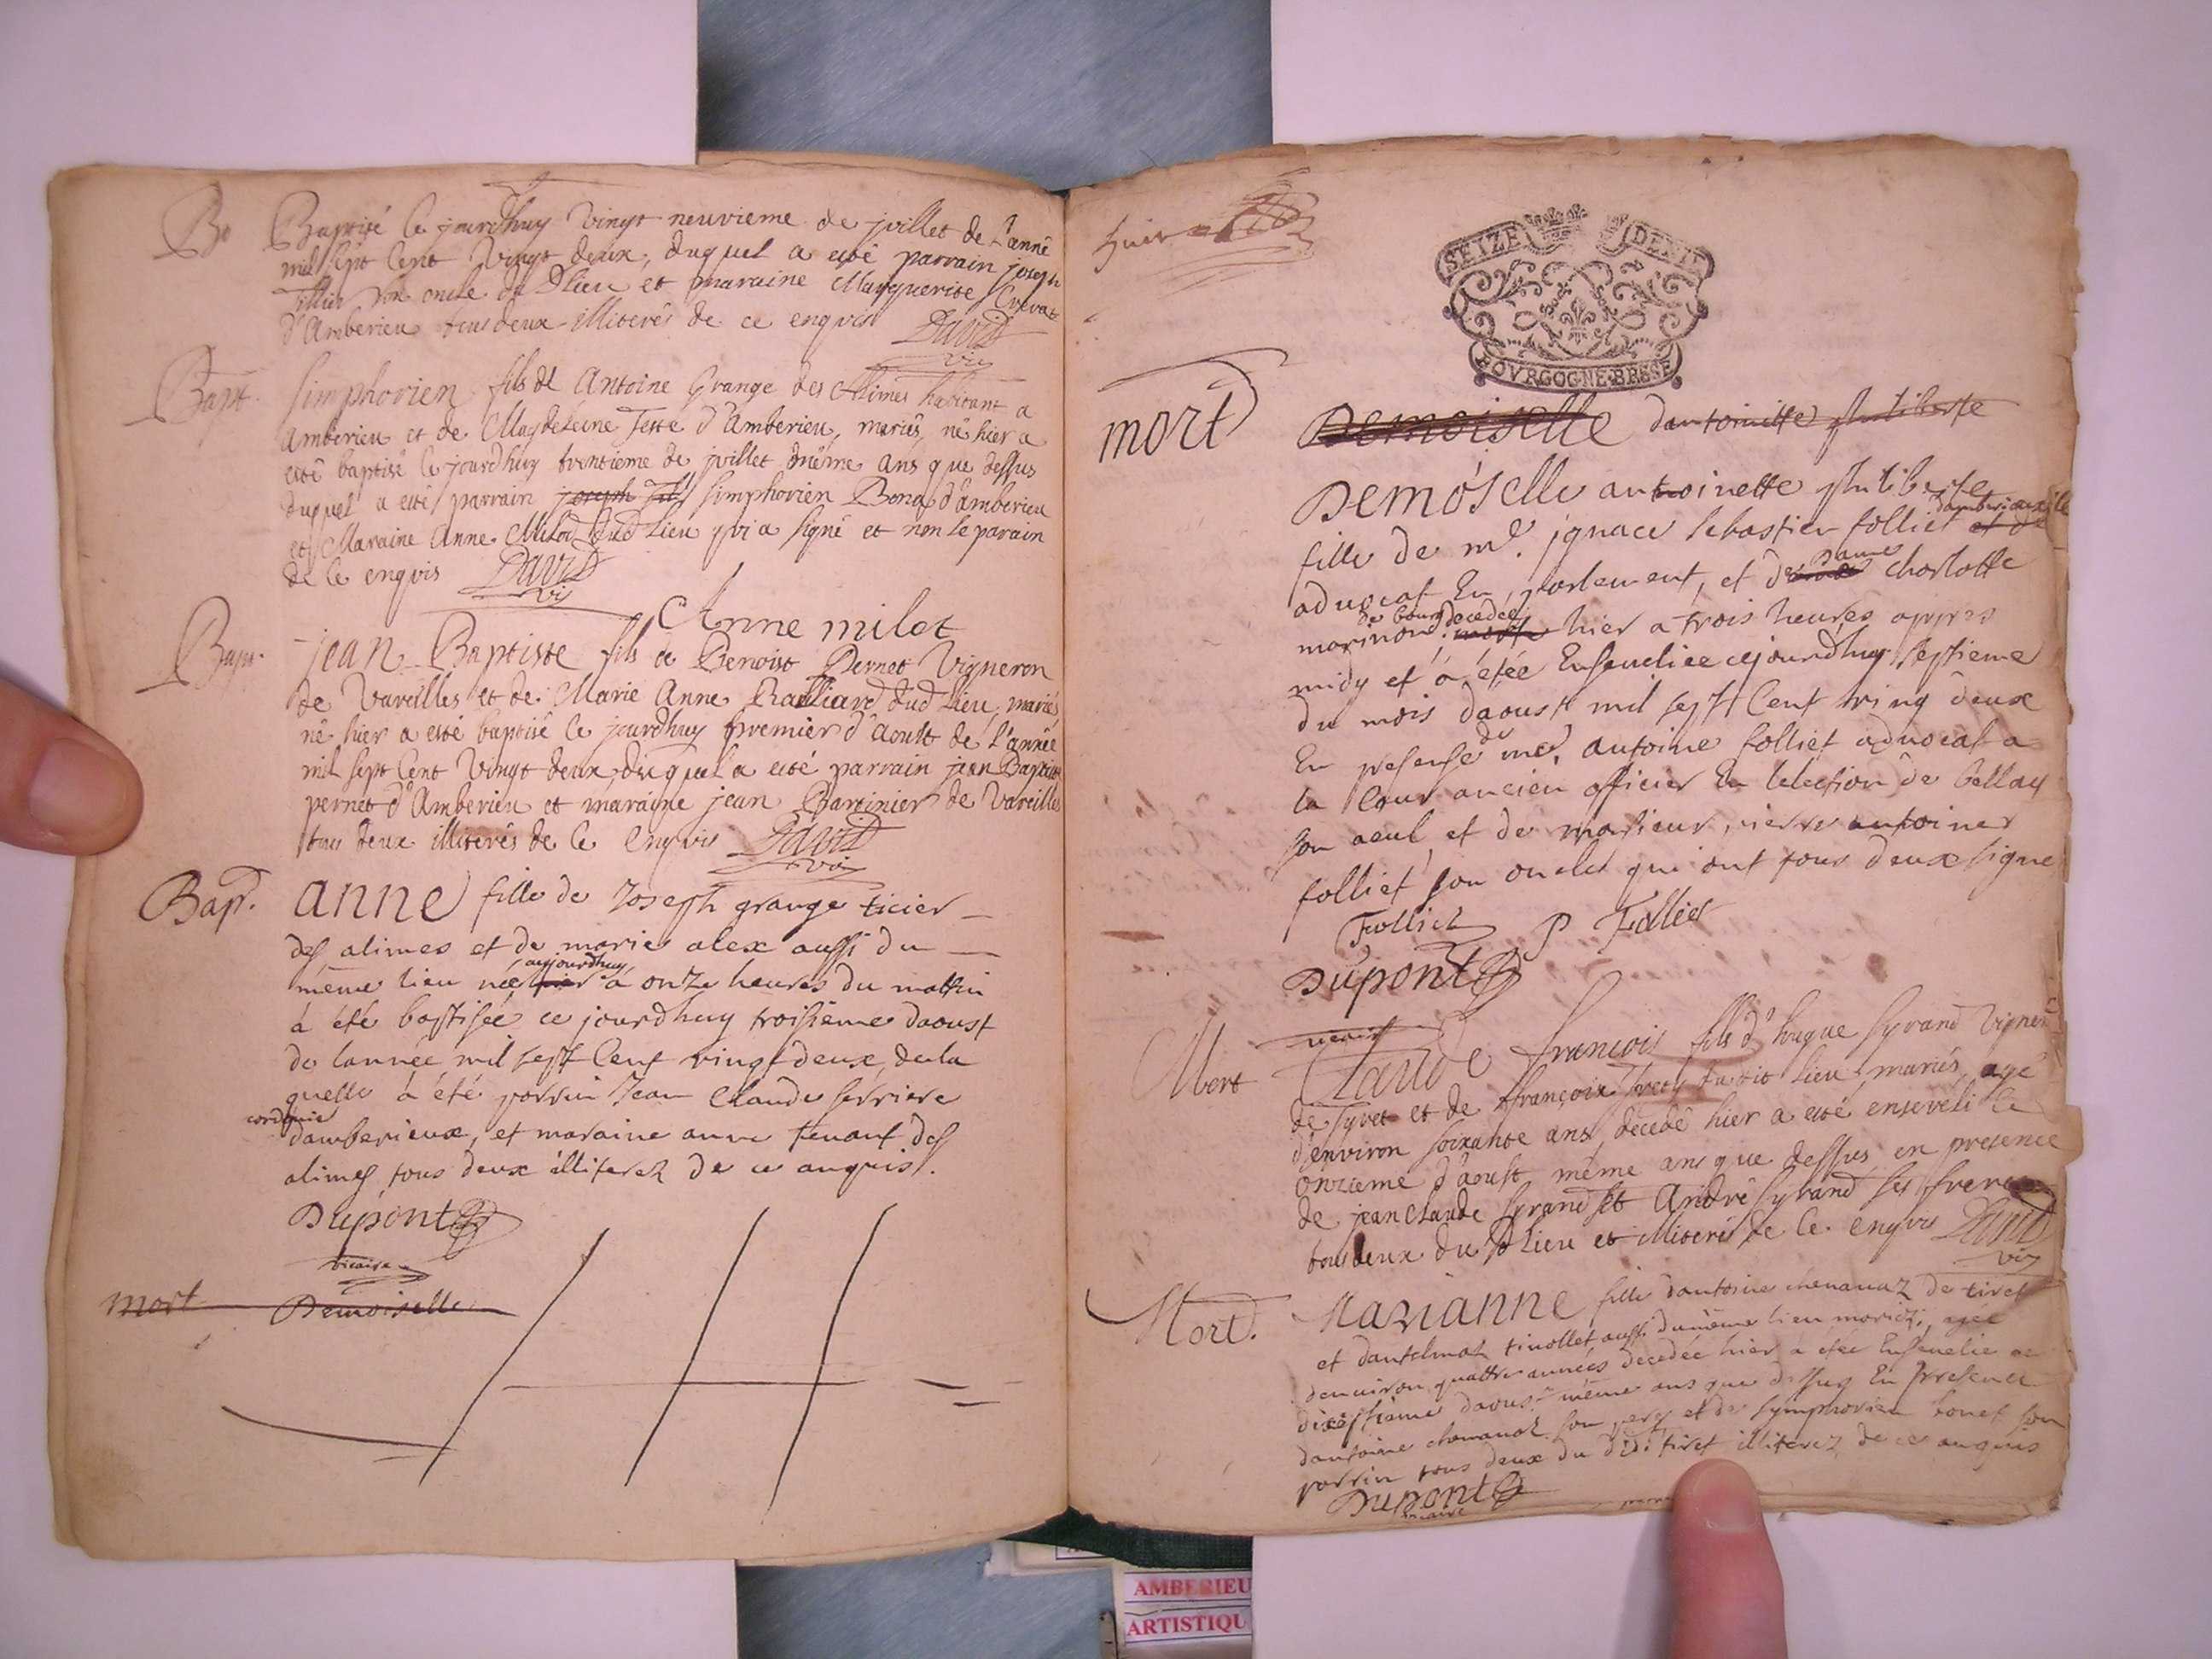 Bapt
Baptisé ce jourdhuy vingt neuvieme de jvillet de L'anné
mil sept Cent vingt deux, duquel a esté parrain joseph
Tillier son oncle du d lieu et maraine Marguerite Crevat
d'Amberieu tous deux illiterés de ce enquis David
vic
Bapt.
Simphorien fils de Antoine Grange des Alimes habitant a
Amberieu et de Magdeleine Teste d'Amberieu, mariés, né hier a
esté baptisé le jourdhuy trentieme de jvillet même ans que dessus
duquel a esté parrain joseph Til simphorien Bona d'amberieu
et Maraine Anne Milod dud Lieu qvi a signé et non le parain
de ce enquis David
vic
Anne milet
Bapt.
jean Baptiste fils de Benoist Pernet Vigneron
de Vareilles et de Marie Anne Ralliard dud Lieu, mariés
né hier a esté baptisé ce jourdhuy premier d'Aoult de L'année
mil sept Cent vingt deux, duquel a esté parrain jean Baptiste
pernet d'Amberieu et maraine jean Bartinier de Vareilles
tous deux illiterés de ce Enqvis David
vic
Bapt.
anne fille de Joseph grange ticier
des alimes et de marie alex aussi du
même lieu née hier aujourdhuy à onze heures du mattin
à été baptisée ce jourdhuy troisieme daoust
de lannée mil sept Cent vingt deux, de la
quelle à été parrin Jean Claude serriere
cordonie
damberieux, et maraine anne tenant des
alimes tous deux illiterez de ce anquis.
Dupont
vicaire
mort Demoiselle
huit
SEIZE DENIE
BOVRGOGNE·BRESSE
mort
Demoiselle dantoinette philiberte
Demoiselle antoinette philiberte
damberieux
fille de mr. jgnace sebastien folliet et de
advocat En parlement, et de Dame charlotte
de bourg decedée
marinon morte hier a trois heures appres
midy et à étée Ensevelie cejourdhuy septieme
du mois daoust mil sept Cent ving deux
En presense de mr. antoine folliet advocat a
la Cour ancien officier En lelection de bellay
son aeul, et de monsieur pierre antoine
folliet son oncle qui ont tous deux signe
Folliet P Folliet
Dupont
vicaire
Mort
Claude francois fils d'hugue Syrand Vigneron
de tyret et de françoise tyret dudit lieu mariés, agé
d'environ soixante ans, decedé hier a esté enseveli le
onzieme d'aoust même ans que dessus en presence
de jean Claude Syrand et André Syrand ses freres
tous deux du d Lieu et illiterés de ce enqvis David
vic
Mort.
Marianne fille dantoine chenavaz de tiret
et dantelmaz tinollet aussi du même lieu mariez, agée
denuiron quattre années decedée hier à étée Ensevelie ce
dixseptieme daoust même ans que dessus En presence
dantoine chenavaz son pere, et de symphorien bonet son
parrin tous deux du dit tiret illiterez de ce anquis
Dupont
vicaire
AMBERIEU
ARTISTIQU